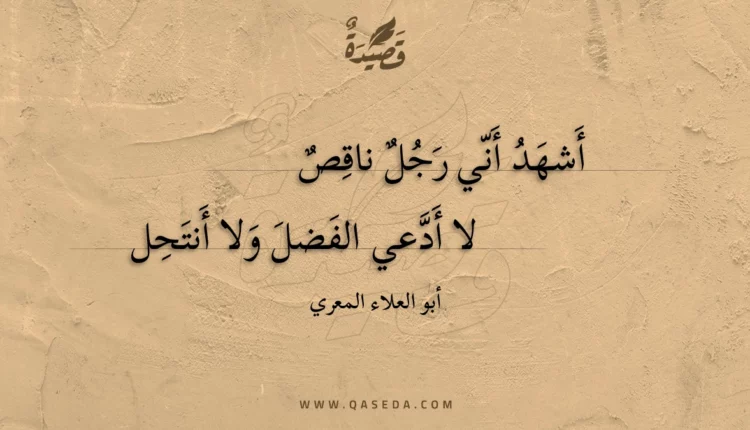 قَصِيدَةٌ
أَشهَدُ أَنّي رَجُلٌ ناقِصٌ
لا أَدَّعي الفَضلَ وَلا أَنتَحِل
أبو العلاء المعري
WWW.QASEDA.COM